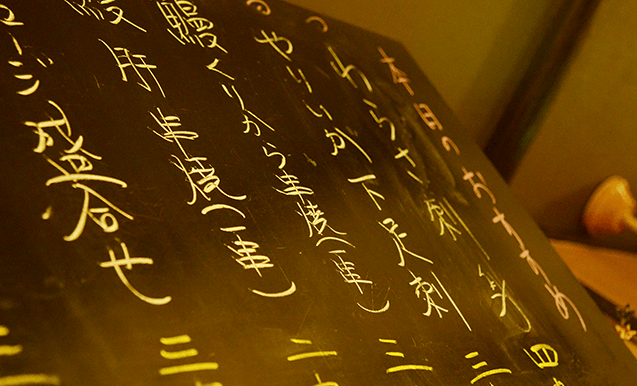 本日のおすすめ
わらさ刺身 四
やりいか下足刺 三
鰻くりから串焼(一串) 三
鰻肝串焼(一串) 二
盛合せ 三